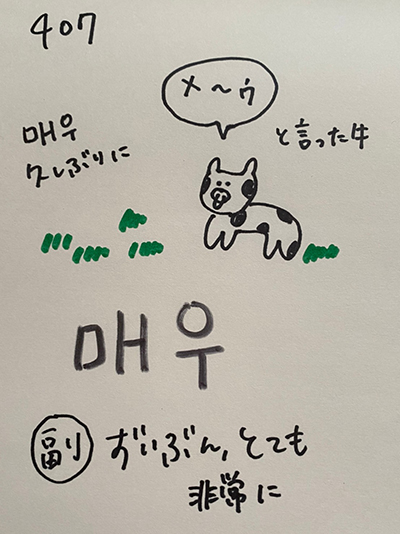 407
メ〜ウ
매우
久しぶりに
と言った牛
매우
副 ずいぶん, とても
非常に